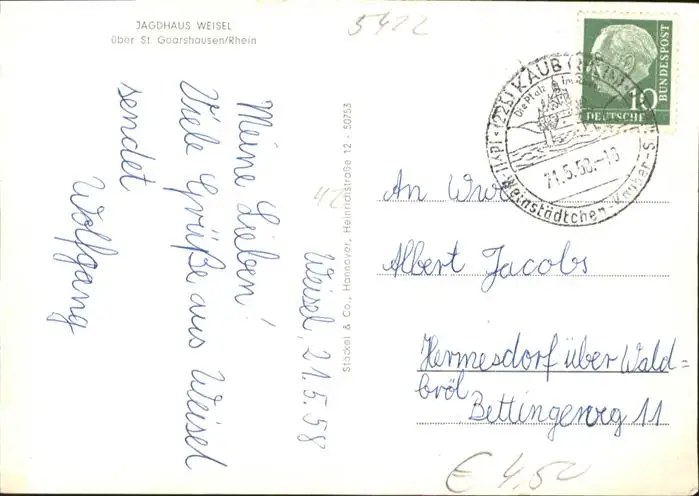 JAGDHAUS WEISEL
über St. Goarshausen/Rhein
5422
Weisel, 21.5.58
Meine Lieben!
Viele Grüße aus Weisel
sendet
Wolfgang
Stöckel & Co., Hannover, Heinrichstraße 12 - 50753
42
(22b) KAUB (RHEIN)
Die Pfalz im
21.5.58.-10
Weinstädtchen
DEUTSCHE
BUNDESPOST
10
An
Albert Jacobs
Hermesdorf über Wald=
bröl
Bettingerweg 11
€ 4,50